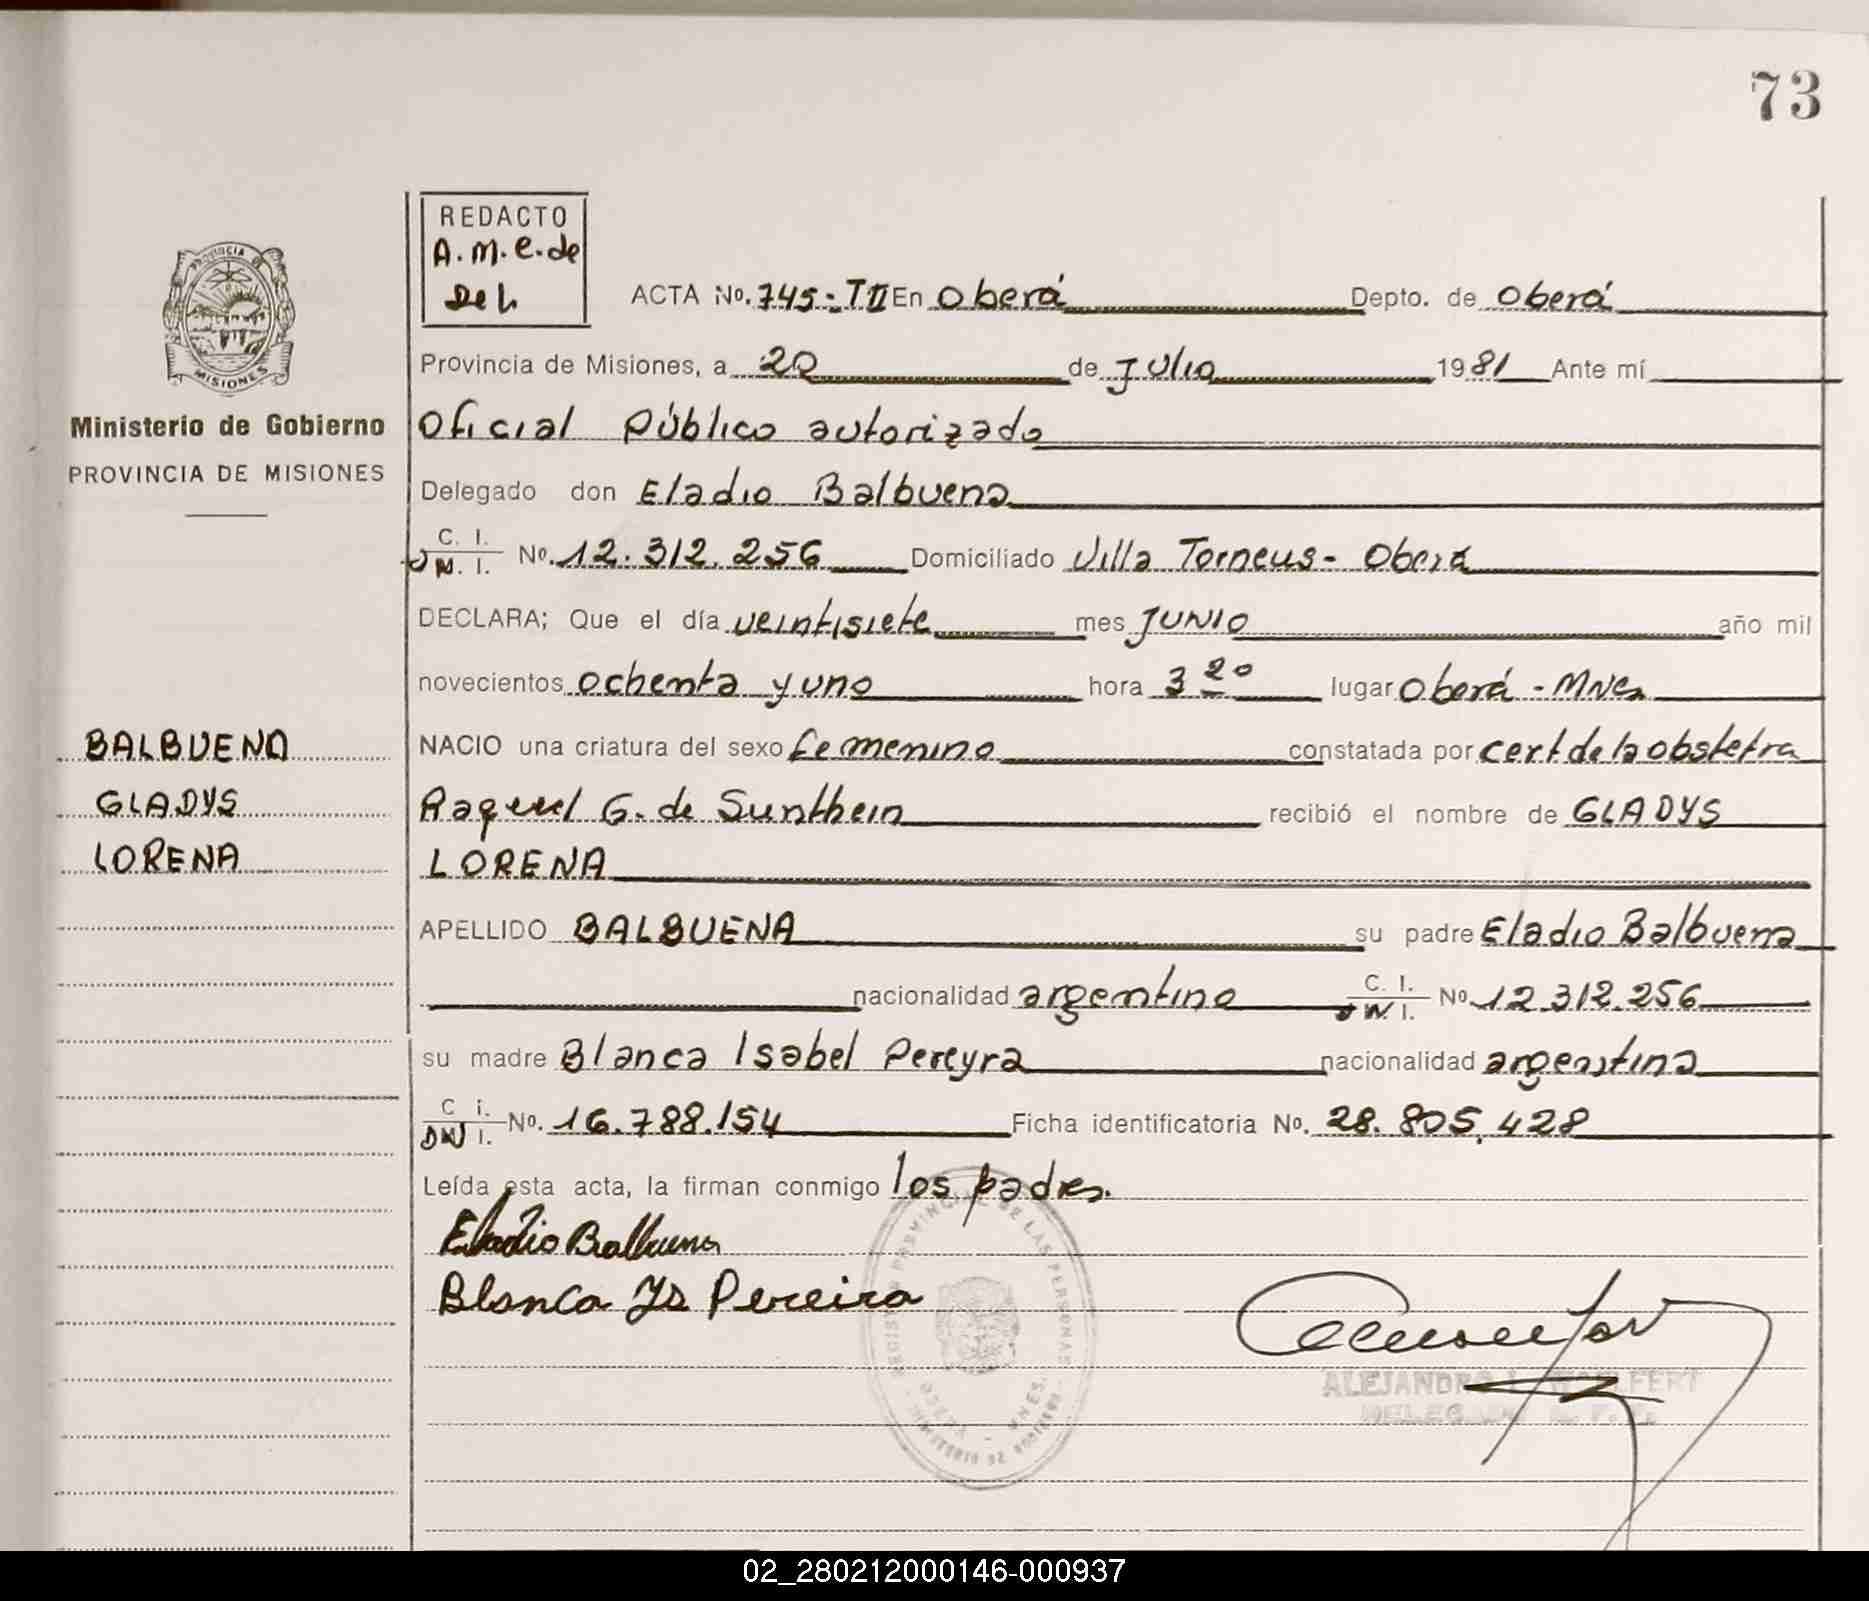 73
REDACTO
A.M.E. de
Del.
PROVINCIA DE
MISIONES
Ministerio de Gobierno
PROVINCIA DE MISIONES
BALBUENA
GLADYS
LORENA
ACTA No. 745-TII En Oberá Depto. de Oberá
Provincia de Misiones, a 20 de Julio 1981 Ante mí
Oficial Público autorizado
Delegado don Eladio Balbuena
C. I.
D N. I. No. 12.312.256 Domiciliado Villa Torneus - Oberá
DECLARA; Que el día veintisiete mes JUNIO año mil
novecientos ochenta y uno hora 3 20 lugar Oberá - Mnes
NACIO una criatura del sexo femenino constatada por cert de la obstetra
Raquel G. de Sunthein recibió el nombre de GLADYS
LORENA
APELLIDO BALBUENA su padre Eladio Balbuena
nacionalidad argentino C. I.
D N. I. No 12.312.256
su madre Blanca Isabel Pereyra nacionalidad argentina
C i.
DN I. No. 16.788.154 Ficha identificatoria No. 28.805.428
Leída esta acta, la firman conmigo los padres.
Eladio Balbuena
Blanca Is Pereira
REGISTRO PROVINCIAL DE LAS PERSONAS
OBERA - MNES.
MINISTERIO DE GOBIERNO
ALEJANDRO
DELEGADO
02_280212000146-000937